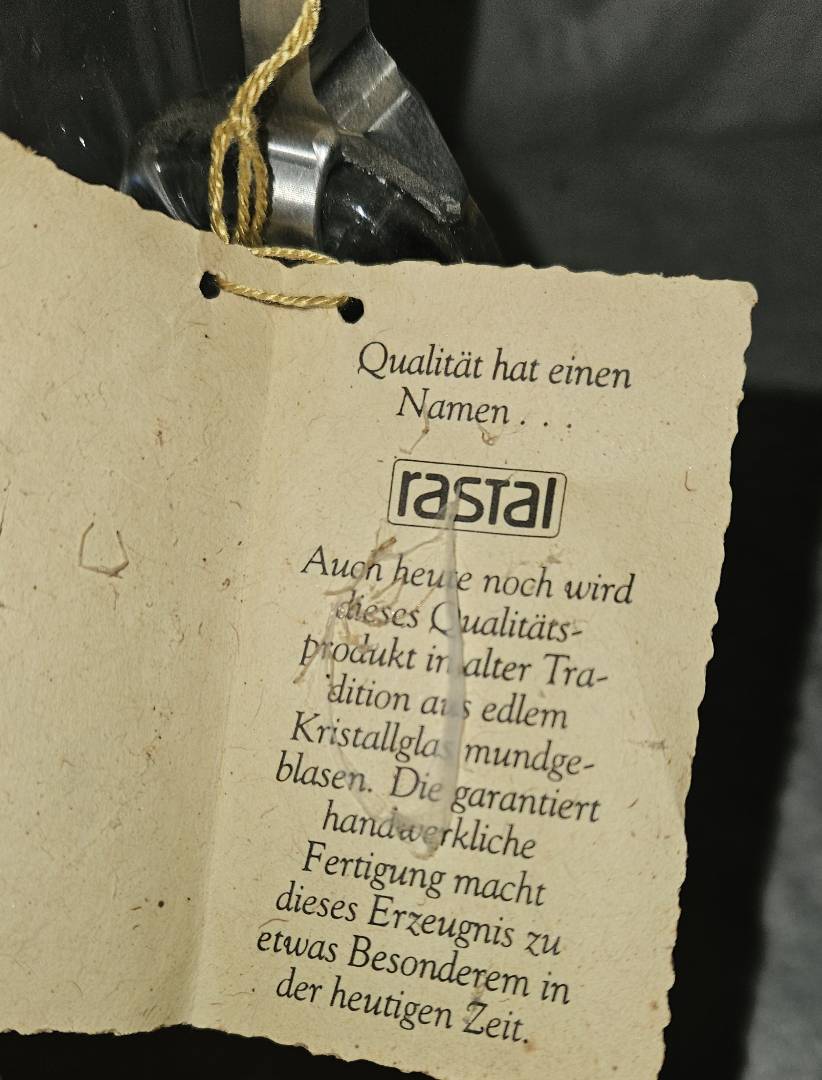 Qualität hat einen
Namen . . .
rastal
Auch heute noch wird
dieses Qualitäts-
produkt in alter Tra-
dition aus edlem
Kristallglas mundge-
blasen. Die garantiert
handwerkliche
Fertigung macht
dieses Erzeugnis zu
etwas Besonderem in
der heutigen Zeit.